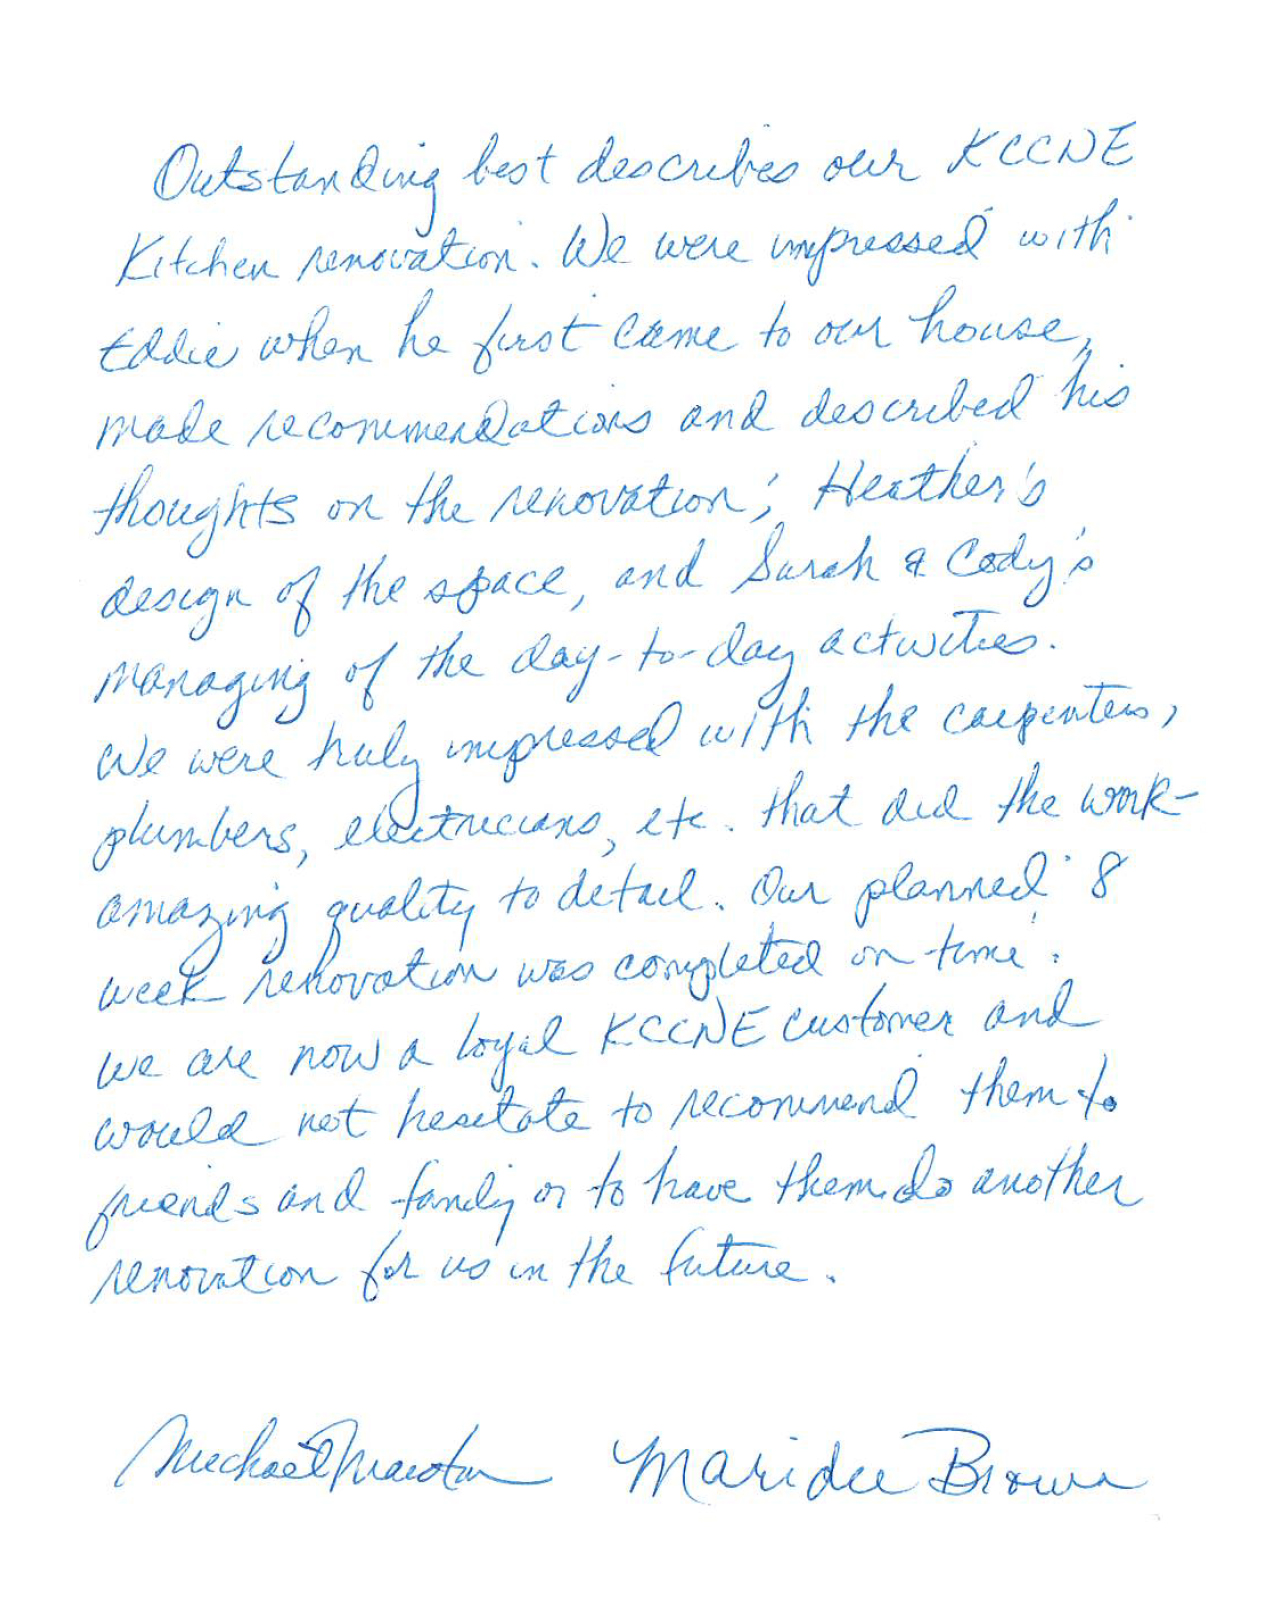 Outstanding best describes our KCCNE
Kitchen renovation. We were impressed with
Eddie when he first came to our house,
made recommendations and described his
thoughts on the renovation; Heather's
design of the space, and Sarah & Cody's
managing of the day-to-day activities.
We were truly impressed with the carpenters,
plumbers, electricians, etc. that did the work-
amazing quality to detail. Our planned 8
week renovation was completed on time.
We are now a loyal KCCNE customer and
would not hesitate to recommend them to
friends and family or to have them do another
renovation for us in the future.
Michael Maridee Brown